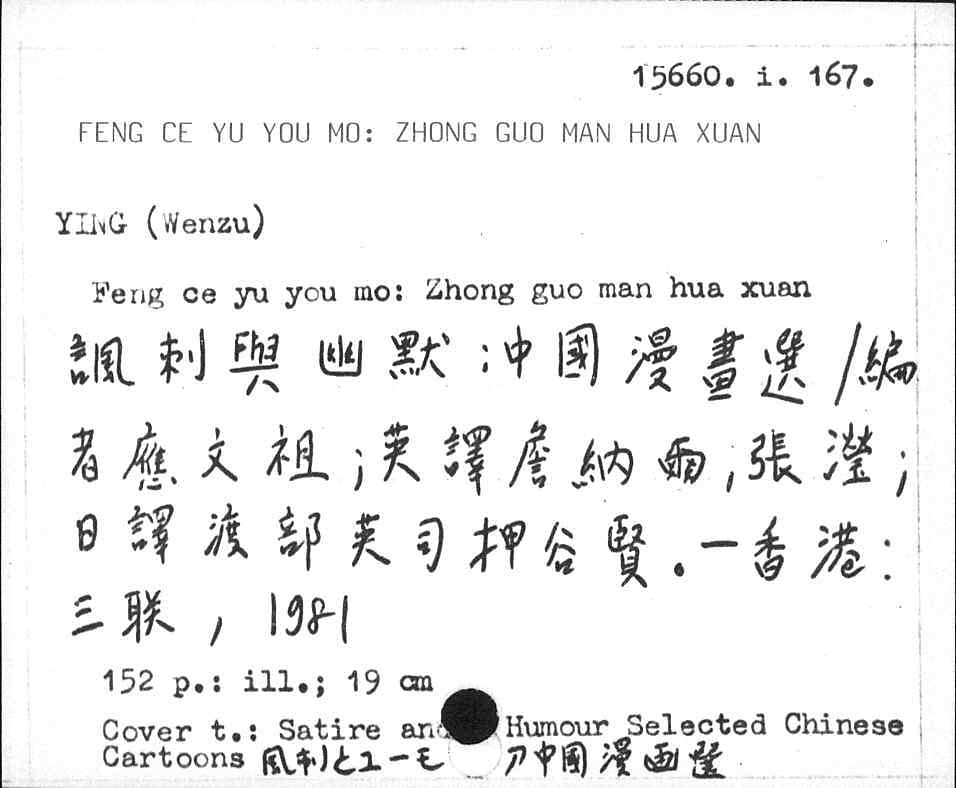 15660. i. 167.
FENG CE YU YOU MO: ZHONG GUO MAN HUA XUAN
YING (Wenzu)
Feng ce yu you mo: Zhong guo man hua xuan
諷刺與幽默;中國漫畫選/編
者應文祖;英譯詹納爾;張瀅;
日譯渡部英司押谷賢。一香港:
三联, 1981
152 p.: ill.; 19 cm
Cover t.: Satire and Humour Selected Chinese
Cartoons 風刺とユーモ 中國漫画選